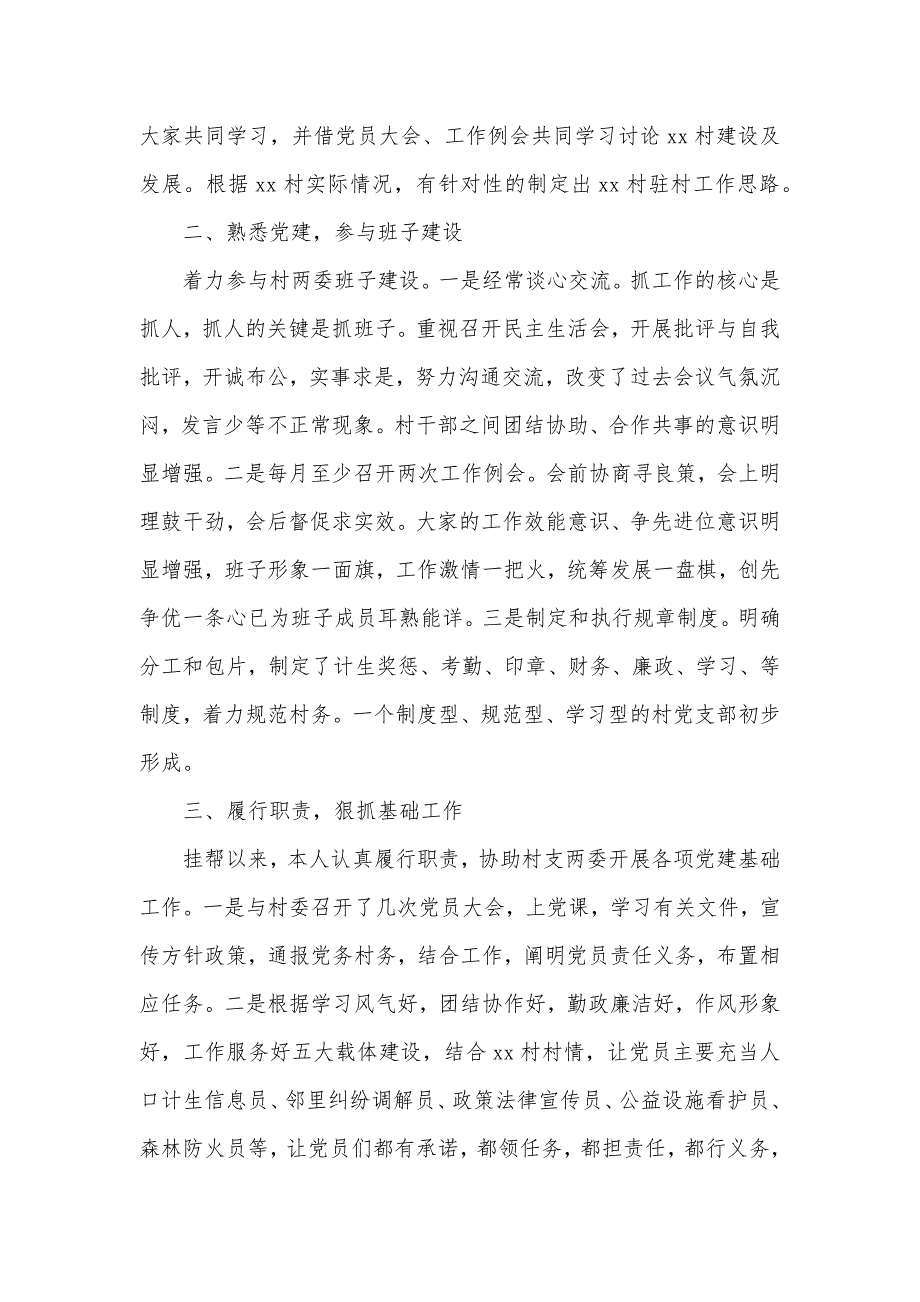 大家共同学习，并借党员大会、工作例会共同学习讨论 xx 村建设及
发展。根据 xx 村实际情况，有针对性的制定出 xx 村驻村工作思路。
二、熟悉党建，参与班子建设
着力参与村两委班子建设。一是经常谈心交流。抓工作的核心是
抓人，抓人的关键是抓班子。重视召开民主生活会，开展批评与自我
批评，开诚布公，实事求是，努力沟通交流，改变了过去会议气氛沉
闷，发言少等不正常现象。村干部之间团结协助、合作共事的意识明
显增强。二是每月至少召开两次工作例会。会前协商寻良策，会上明
理鼓干劲，会后督促求实效。大家的工作效能意识、争先进位意识明
显增强，班子形象一面旗，工作激情一把火，统筹发展一盘棋，创先
争优一条心已为班子成员耳熟能详。三是制定和执行规章制度。明确
分工和包片，制定了计生奖惩、考勤、印章、财务、廉政、学习、等
制度，着力规范村务。一个制度型、规范型、学习型的村党支部初步
形成。
三、履行职责，狠抓基础工作
挂帮以来，本人认真履行职责，协助村支两委开展各项党建基础
工作。一是与村委召开了几次党员大会，上党课，学习有关文件，宣
传方针政策，通报党务村务，结合工作，阐明党员责任义务，布置相
应任务。二是根据学习风气好，团结协作好，勤政廉洁好，作风形象
好，工作服务好五大载体建设，结合 xx 村村情，让党员主要充当人
口计生信息员、邻里纠纷调解员、政策法律宣传员、公益设施看护员、
森林防火员等，让党员们都有承诺，都领任务，都担责任，都行义务，